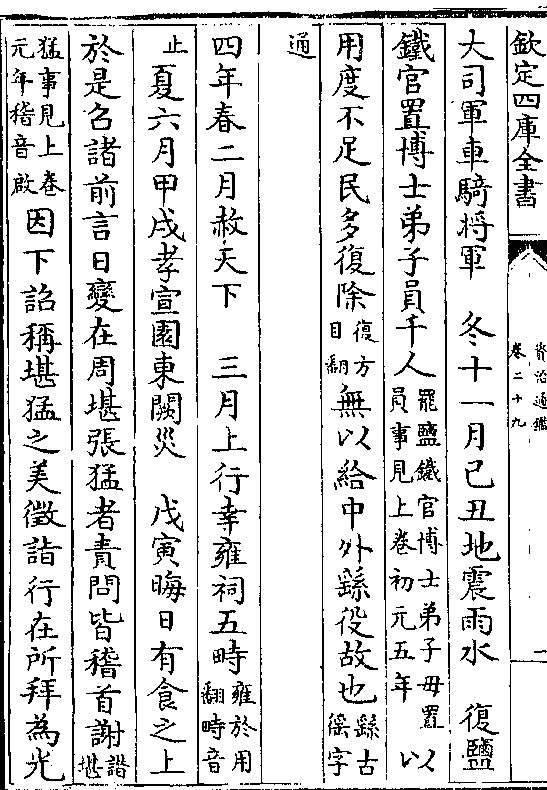 欽定四庫全書
資治通鑑
卷二十九
二
大司軍車騎將軍　冬十一月己丑地震雨水　復鹽
鐵官置博士弟子員千人罷鹽鐵官博士弟子毋置員事見上卷初元五年以
用度不足民多復除復方目翻無以給中外繇役故也繇古徭字
通
四年春二月赦天下　三月上行幸雍祠五畤雍於用翻畤音
止夏六月甲戌孝宣園東闕災　戊寅晦日有食之上
於是召諸前言日變在周堪張猛者責問皆稽首謝諧堪
猛事見上卷元年稽音啟因下詔稱堪猛之美徵詣行在所拜為光